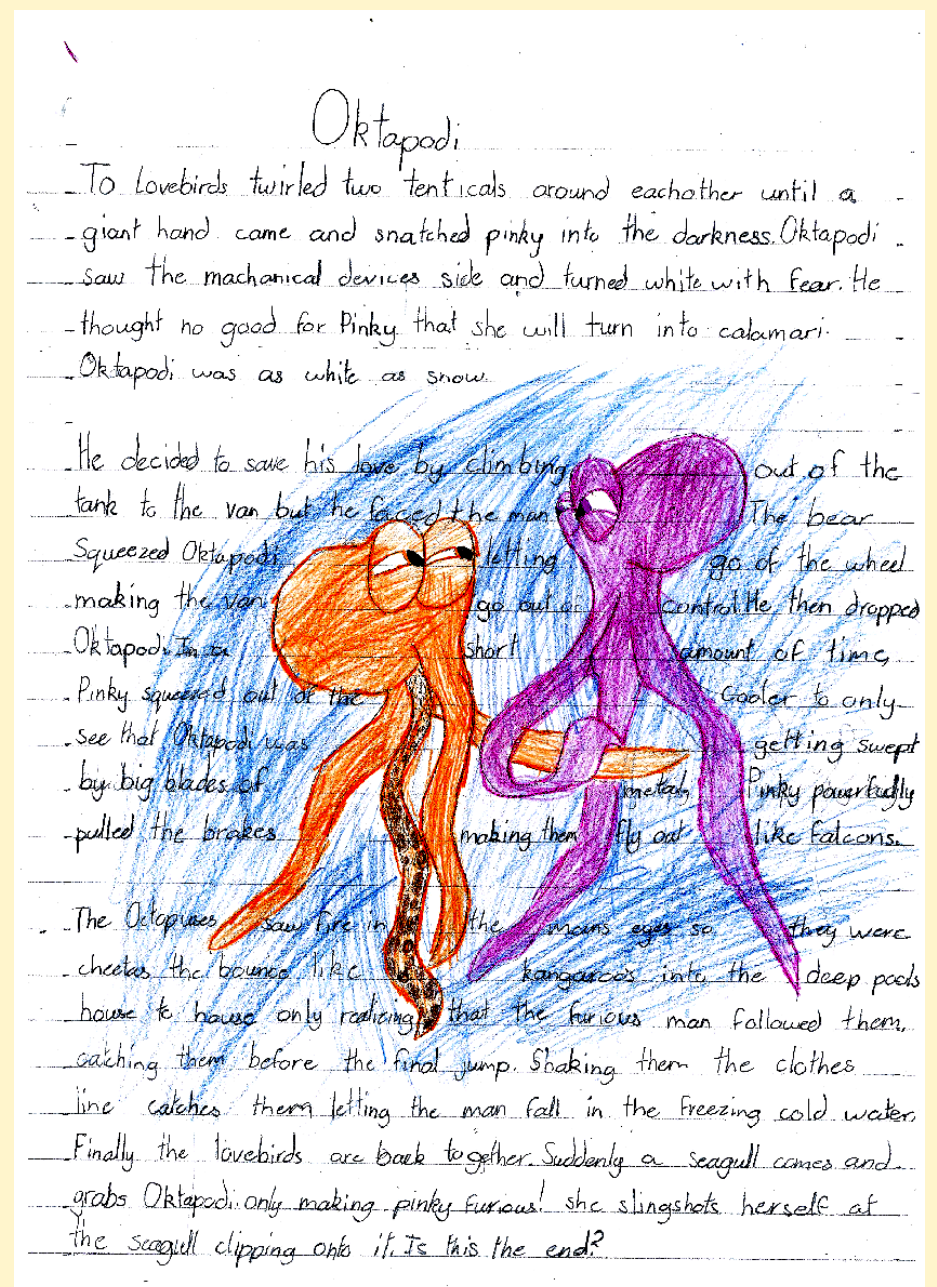 Oktapodi
To Lovebirds twirled two tenticals around eachother until a
giant hand came and snatched pinky into the darkness. Oktapodi
saw the machanical devices side and turned white with fear. He
thought no good for Pinky that she will turn into calamari.
Oktapodi was as white as snow.
He decided to save his love by climbing out of the
tank to the van but he faced the man The bear
Squeezed Oktapodi letting go of the wheel
making the van go out of control He then dropped
Oktapodi. In a short amount of time,
Pinky squeezed out of the Cooler to only
see that Oktapodi was getting swept
by big blades of metal, Pinky powerfully
pulled the brakes making them fly out like falcons.
The Octopuses saw fire in the means eyes so they were
cheetas the bounce like kangaroos into the deep pools
house to house only realizing that the furious man followed them,
catching them before the final jump. Shaking them the clothes
line catches them letting the man fall in the freezing cold water.
Finally the lovebirds are back together. Suddenly a seagull comes and
grabs Oktapodi only making pinky furious! she slingshots herself at
the seagull clipping onto it. Is this the end?